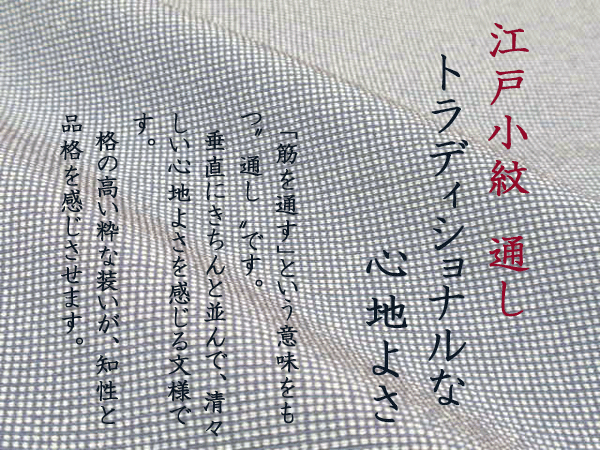 江戸小紋　通し
トラディショナルな
心地よさ
「筋を通す」という意味をも
つ〝通し〟です。
垂直にきちんと並んで、清々
しい心地よさを感じる文様で
す。
格の高い粋な装いが、知性と
品格を感じさせます。